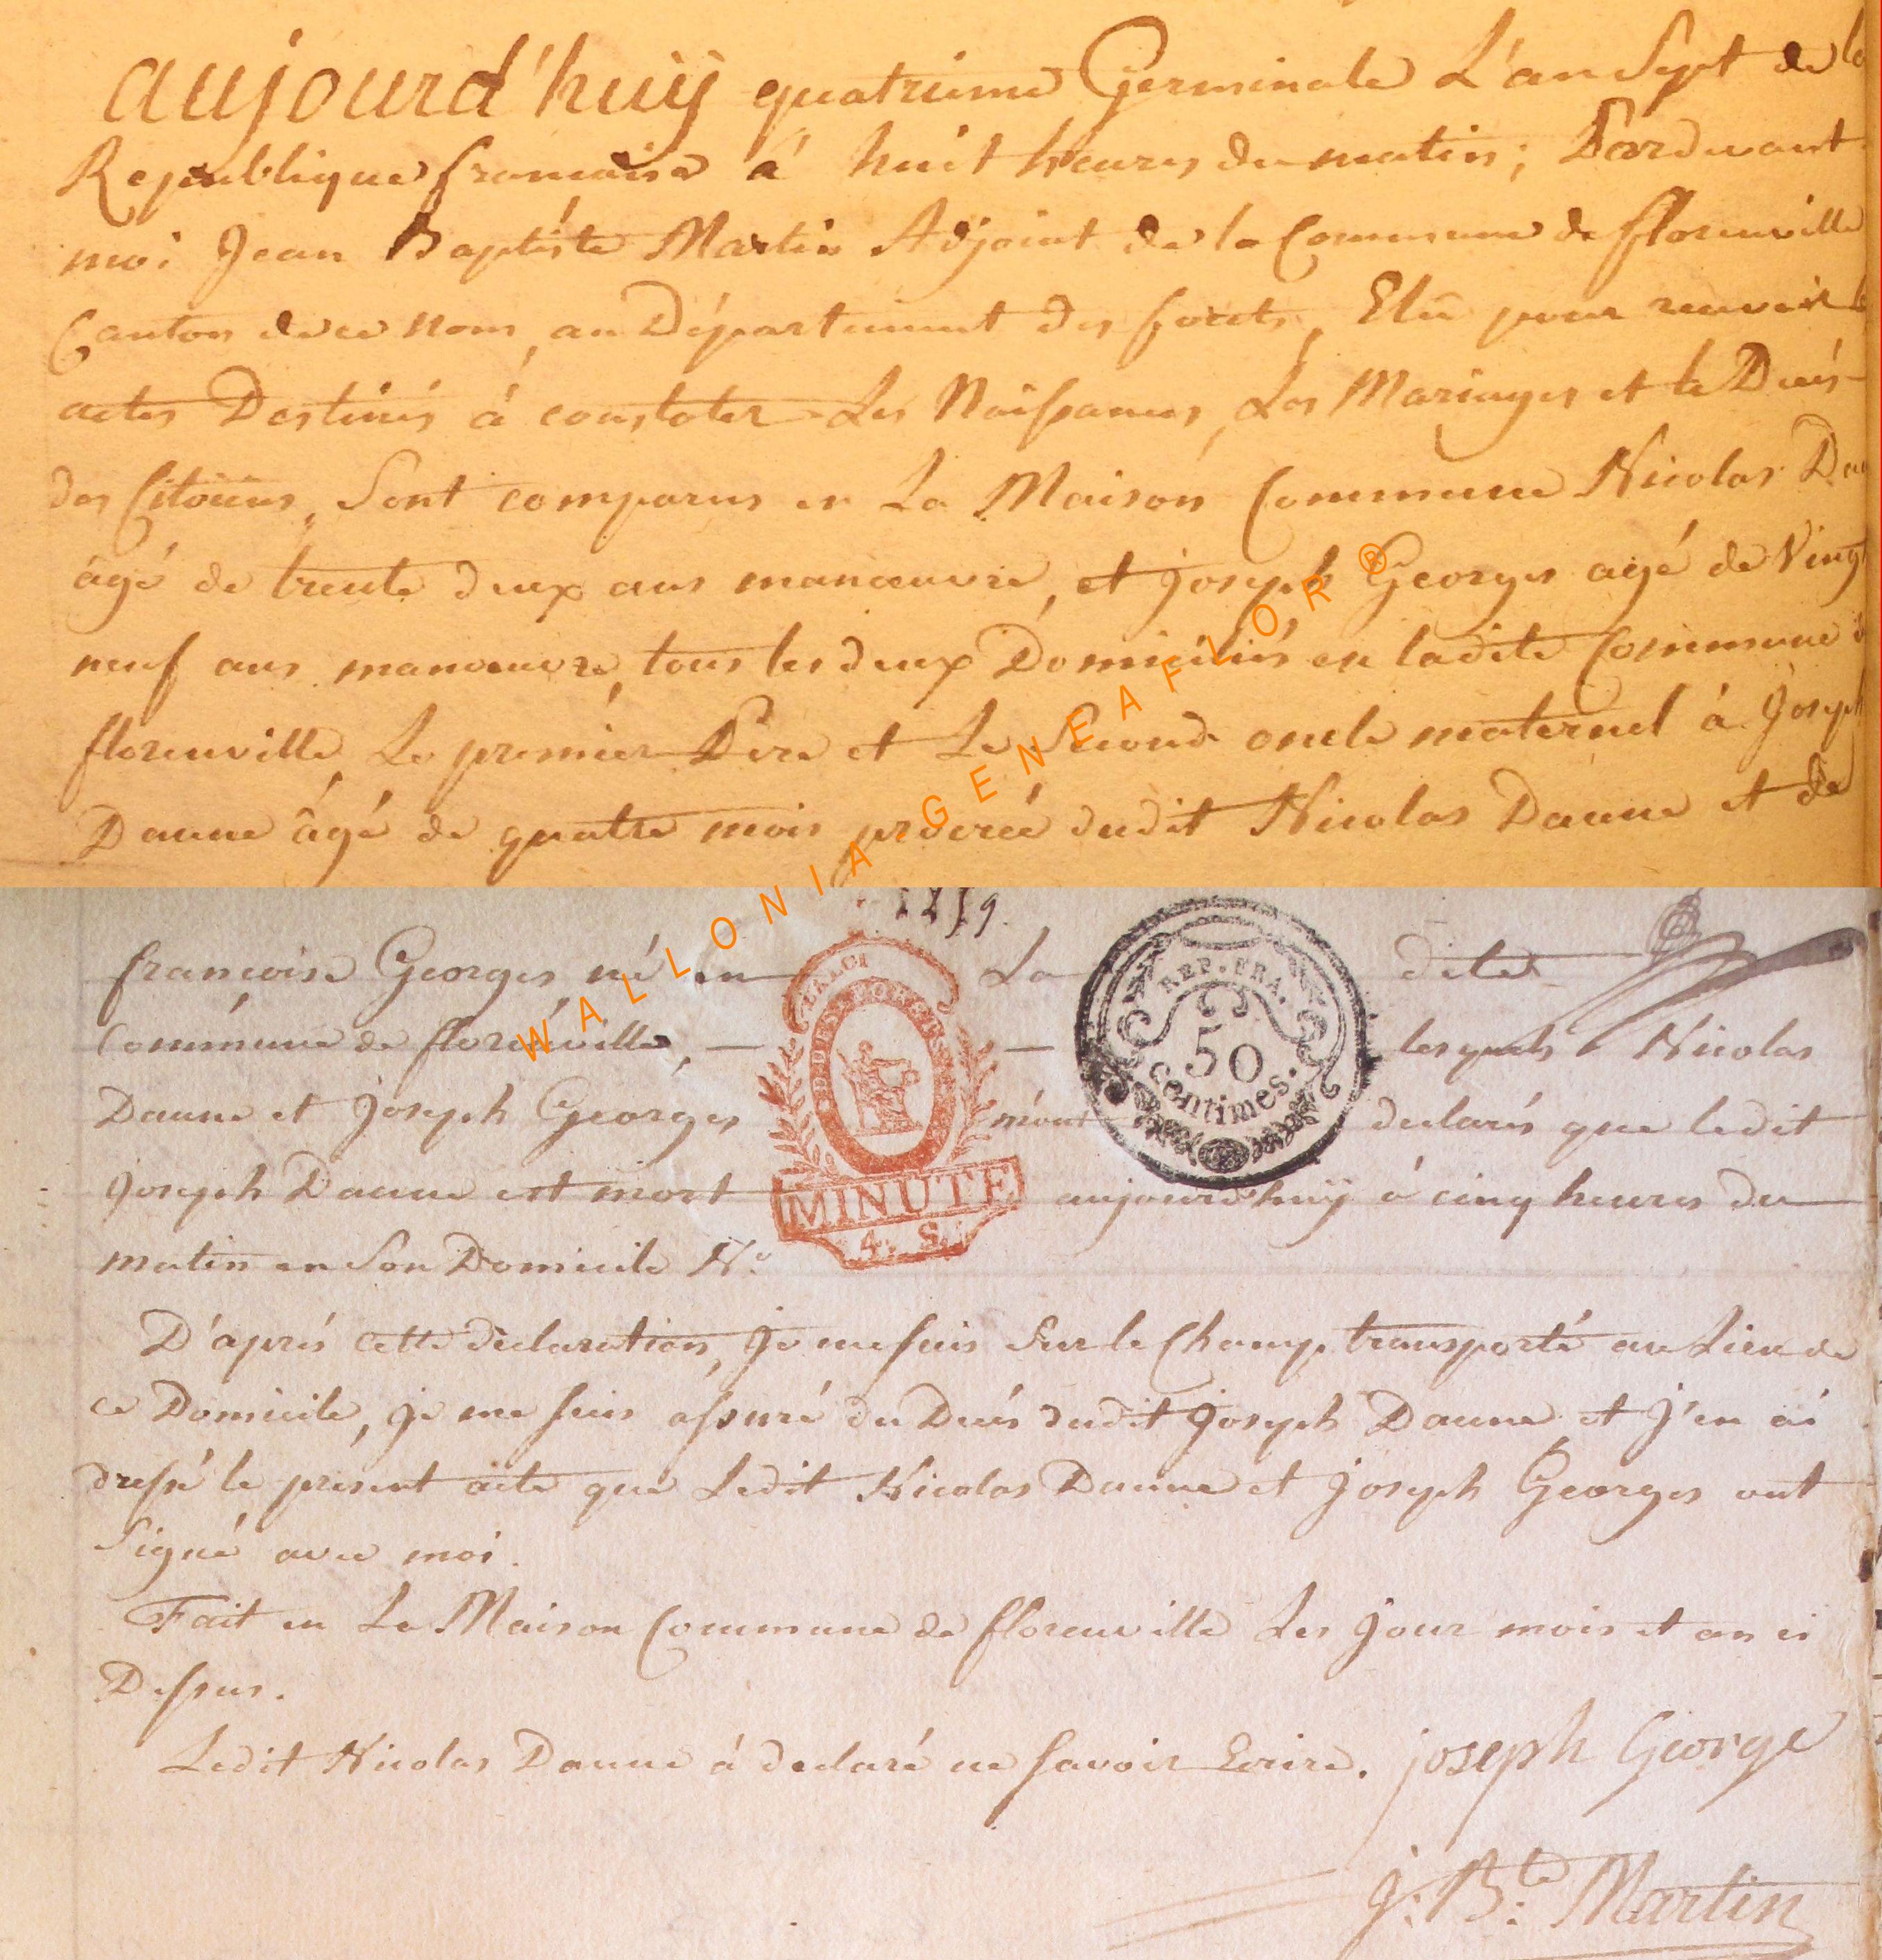 aujourd'huij quatrieme Germinale L'an Sept de la
Republique francaise à huit heures du matin; Pardevant
moi Jean Baptiste Martin Adjoint de la Commune de florenville
Canton de ce nom, au Département des forets, Elu pour recevoir les
actes Destinés à constater Les Naissances, Les Mariages et le Decés
des Citoiens, Sont comparus en La Maison Commune Nicolas
âgé de trente deux ans manœuvre, et joseph Georges agé de Vingt
neuf ans manœuvre, tous les deux Domiciliés en ladite Commune de
florenville, Le premier Pere et Le Second oncle maternel à Joseph
Daune âgé de quatre mois procreé dudit Nicolas Daune et de
francoise Georges né en La dite
Commune de florenville, — — lesquels Nicolas
Daune et joseph Georges m'ont declarés que ledit
joseph Daune est mort aujourd'huij à cinq heures du
matin en Son Domicile N.o
D'aprés cette declaration, je me suis Sur le Champ transporté au Lieu de
ce Domicile, je me suis assuré du Decés dudit joseph Daune et j'en ai
dressé le present acte que Ledit Nicolas Daune et joseph Georges ont
Signé avec moi.
Fait en La Maison Commune de florenville Les jour mois et an ci
Dessus.
Ledit Nicolas Daune à declaré ne savoir Ecrire. joseph George
j: B:te Martin
REP. FRA.
50
centimes.
MINUTE
4. S.
WALLONIA GENEAFLOR®